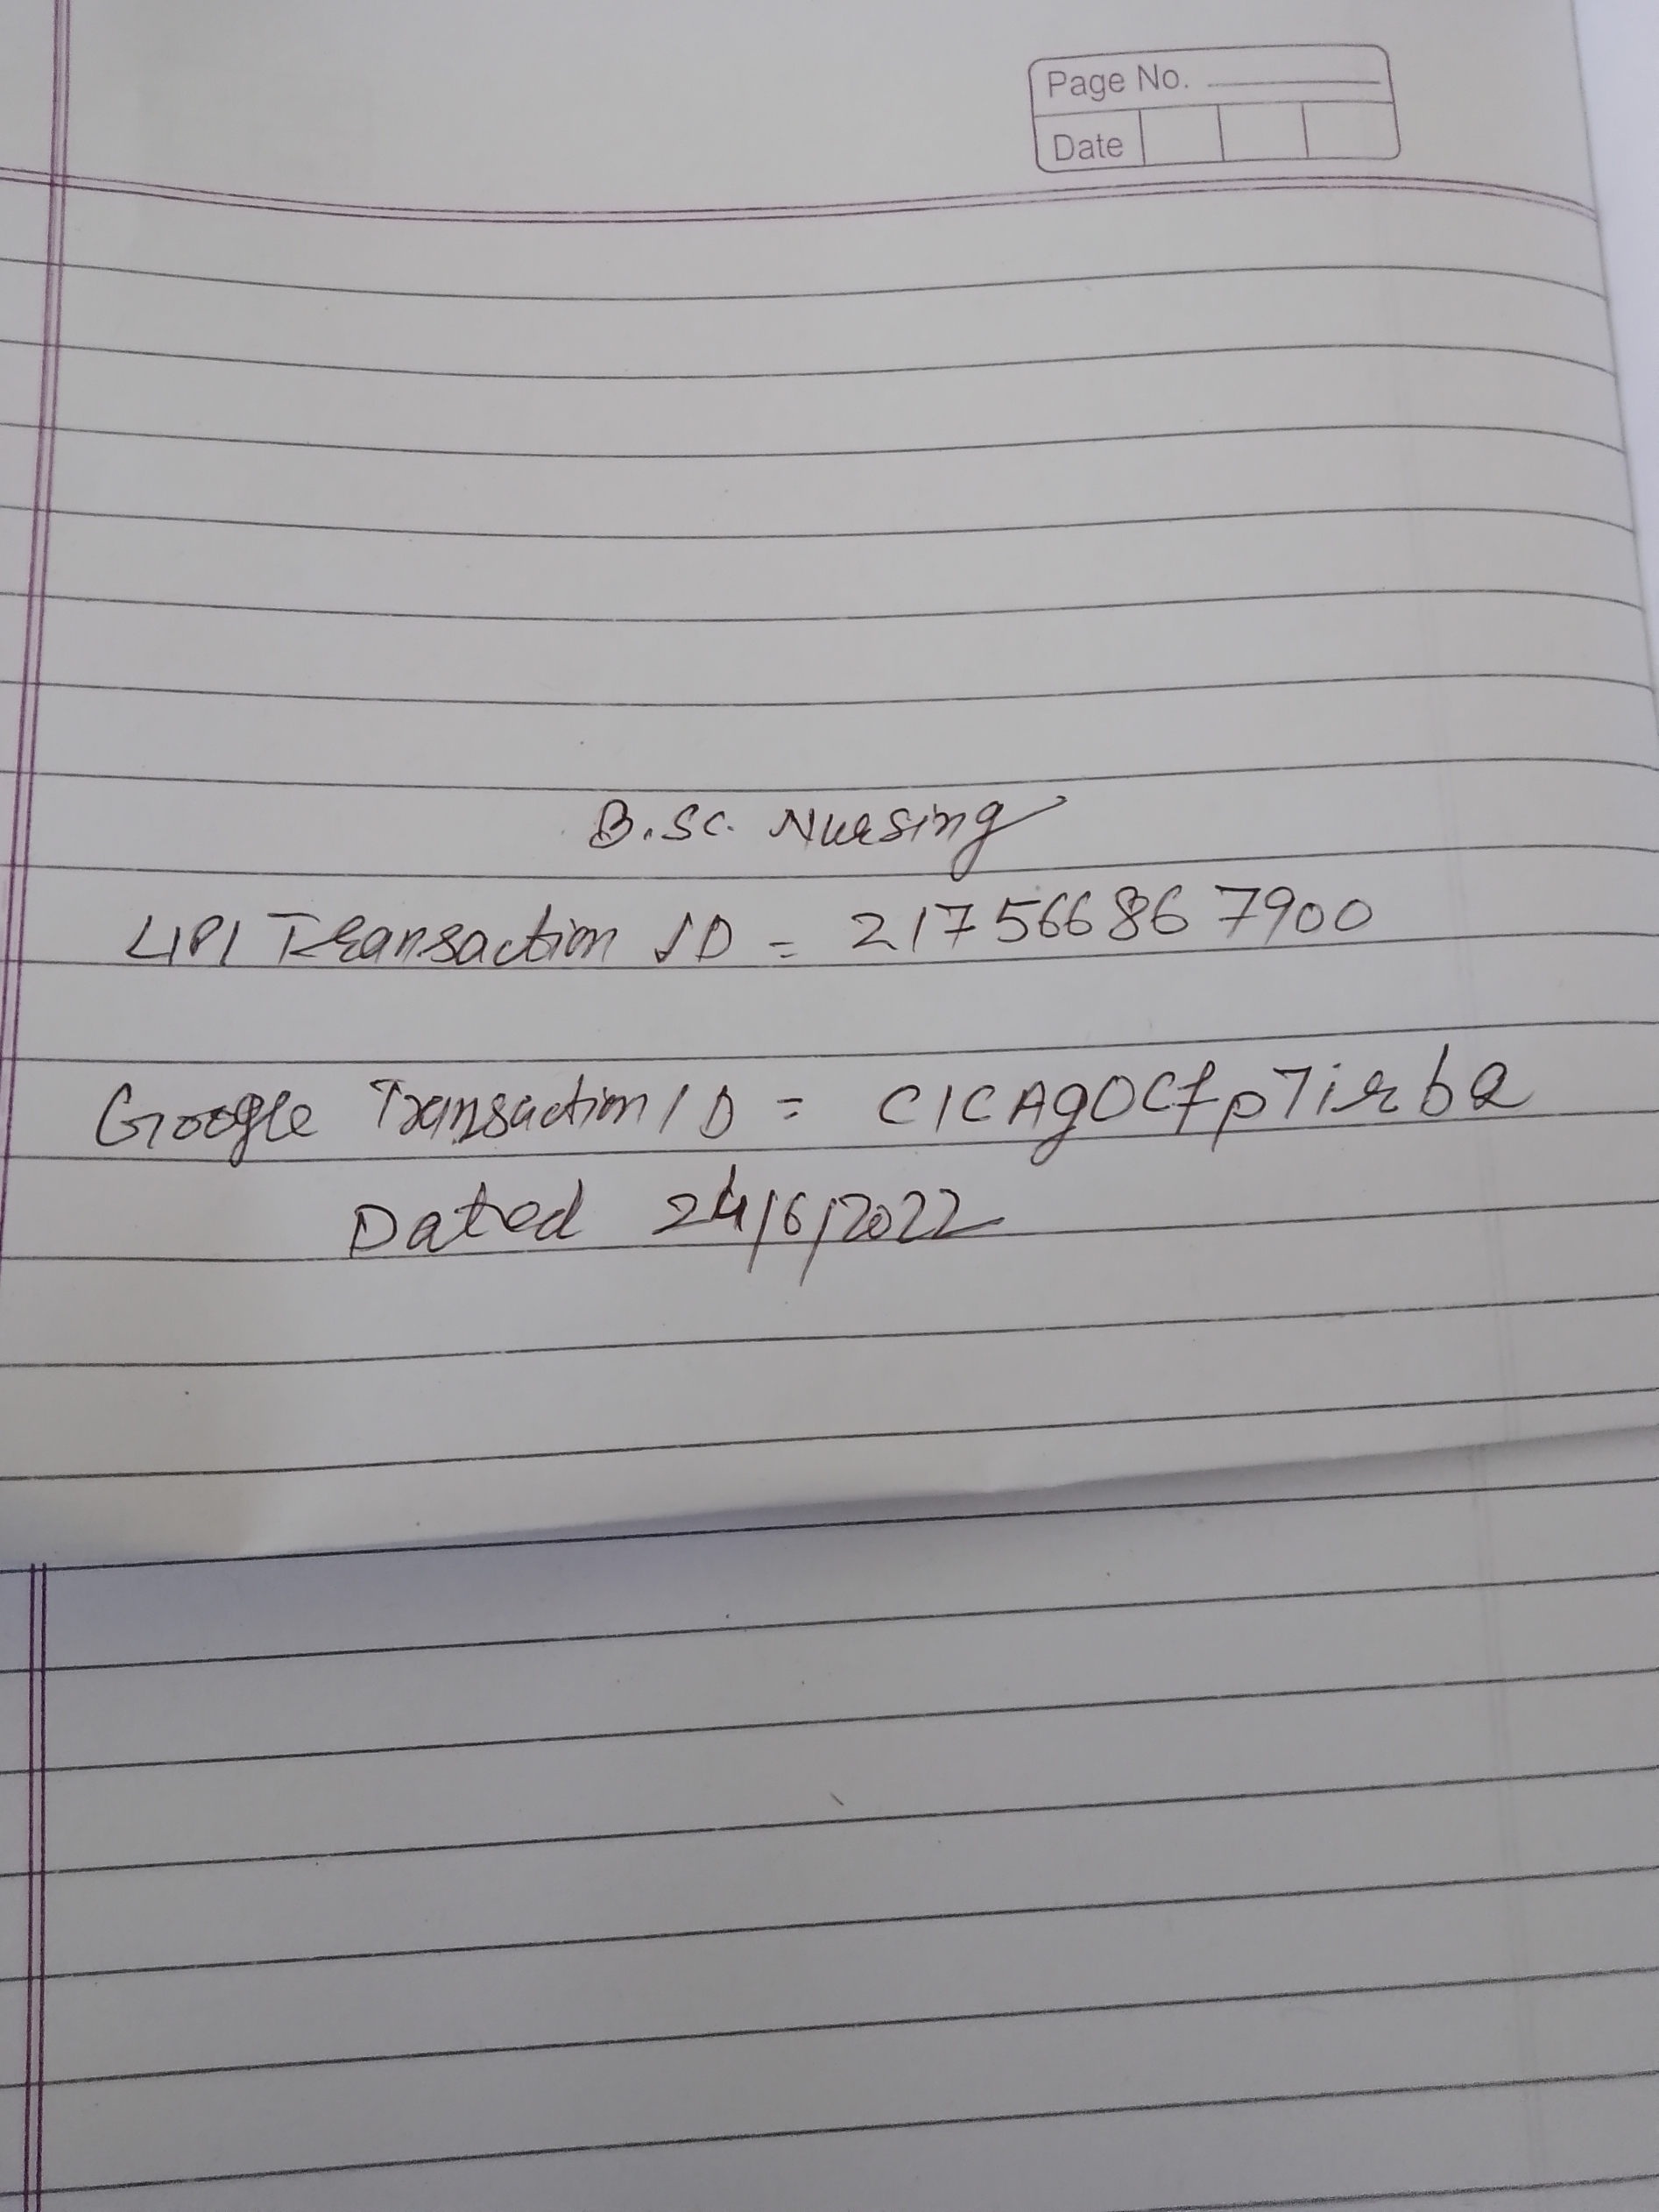 Page No.
Date
B.Sc. Nursing
UPI Transaction ID = 217566867900
Google Transaction ID = CICAgOCfp7irbQ
Dated 24/6/2022